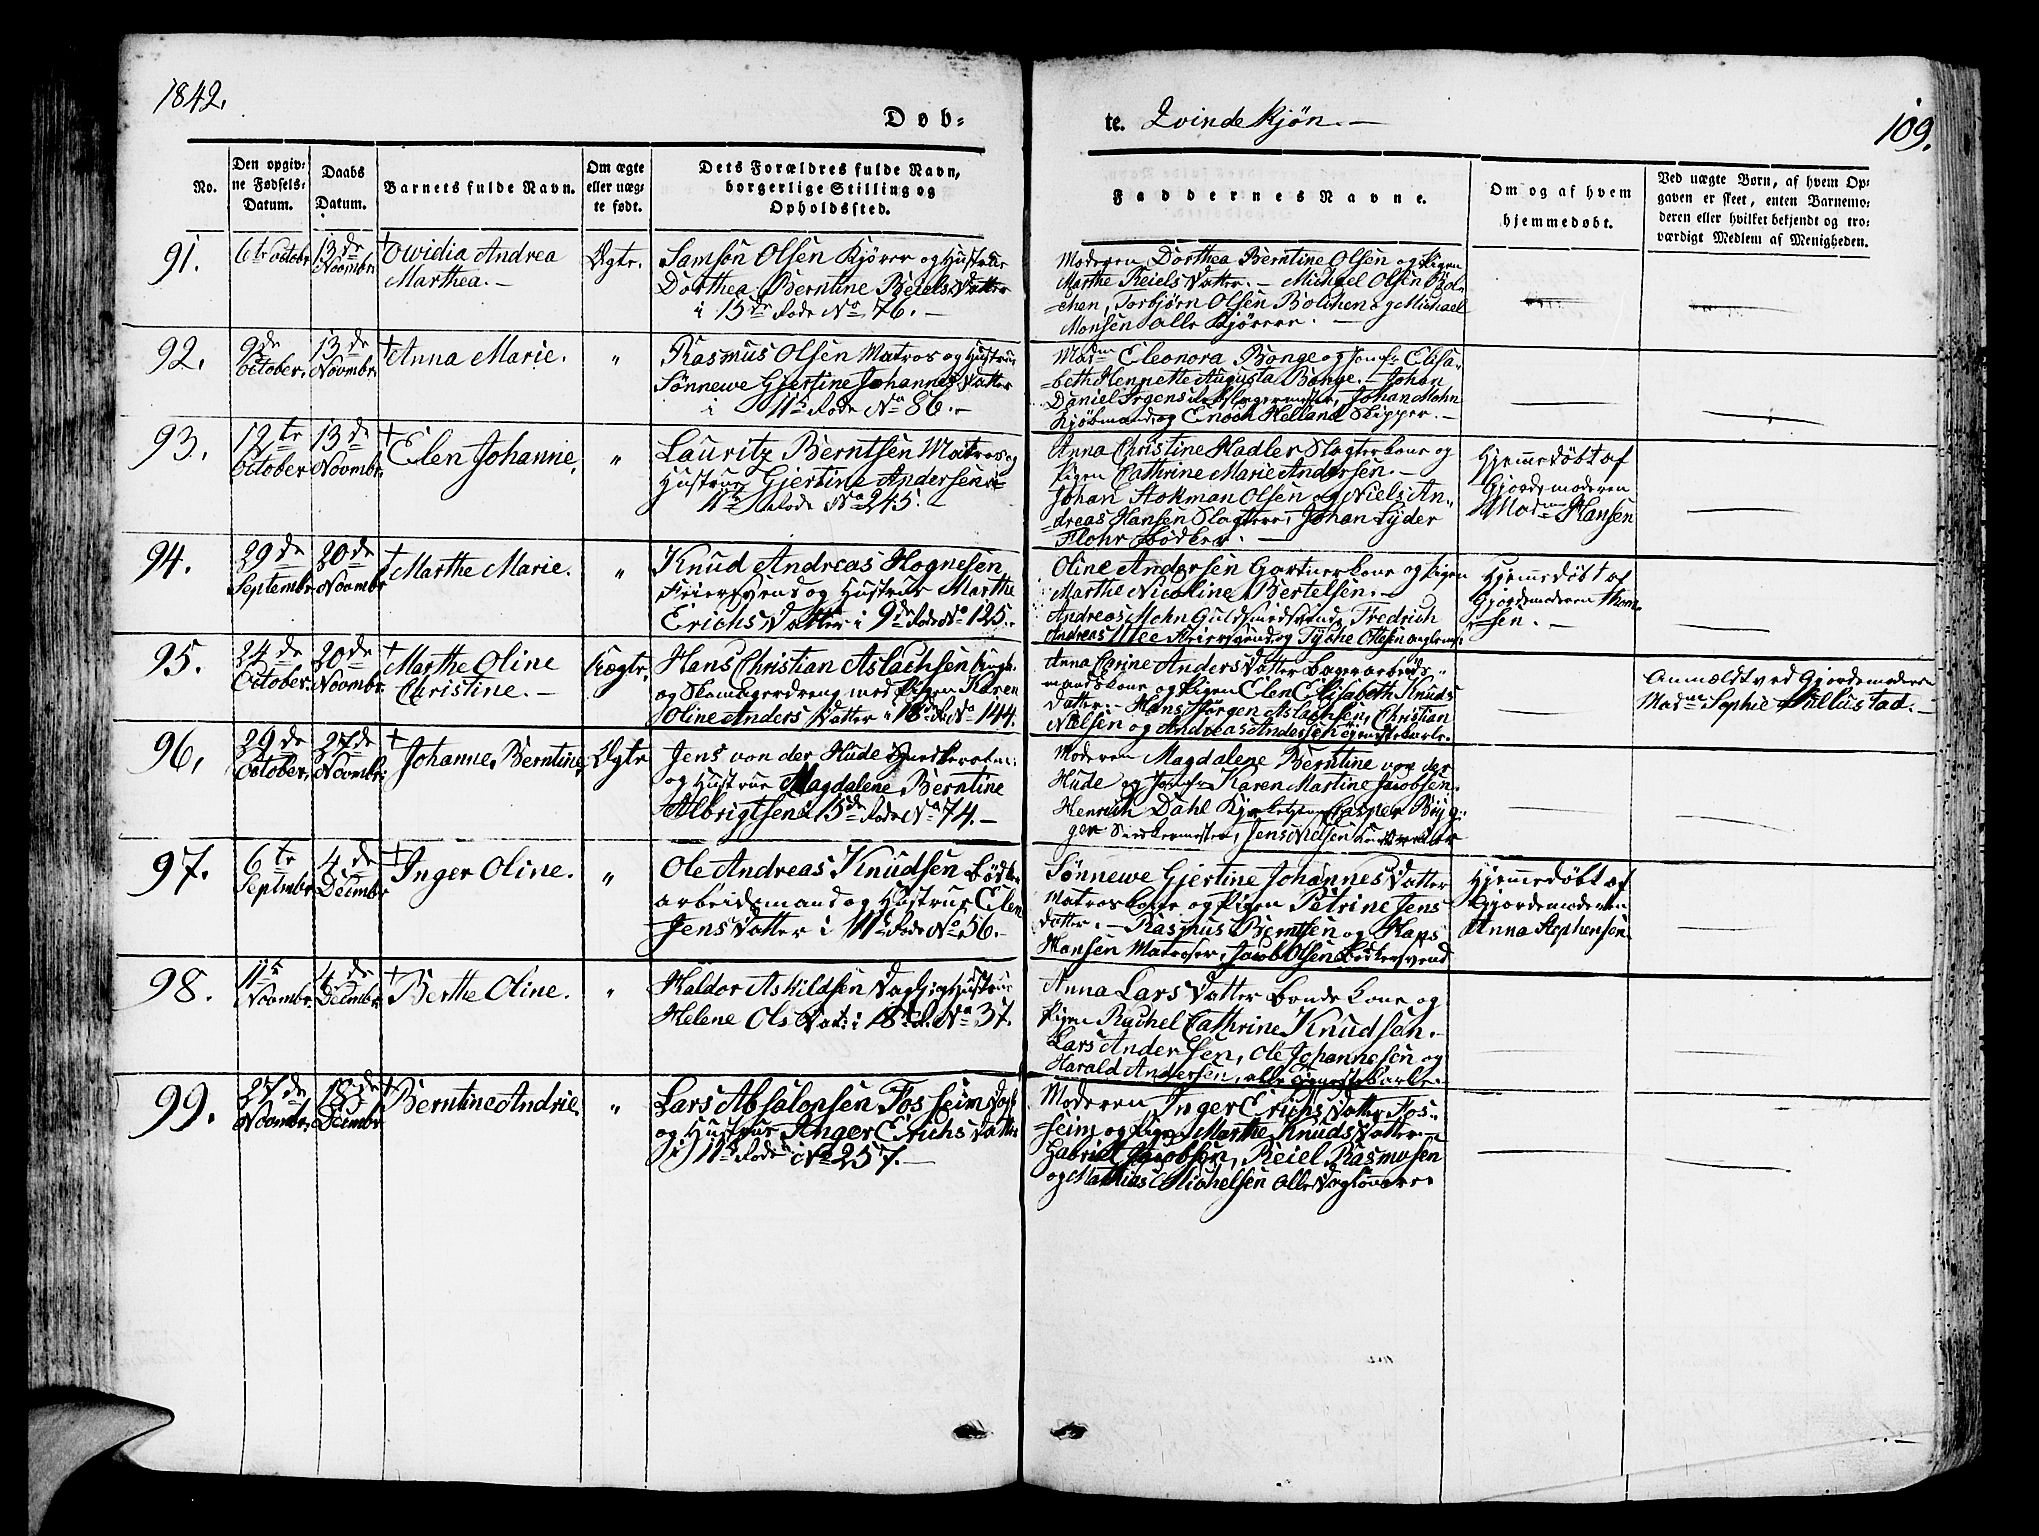 1842.
Døb-
te. Qvindekjøn. —
109.
No.
Den opgiv-
ne Fødsels-
Datum.
Daabs
Datum.
Barnets fulde Navn.
Om ægte
eller uæg-
te født.
Dets Forældres fulde Navn,
borgerlige Stilling og
Opholdssted.
Faddernes Navne.
Om og af hvem
hjemmedøbt.
Ved uægte Børn, af hvem Op-
gaven er skeet, enten Barnemo-
deren eller hvilket bekjendt og tro-
værdigt Medlem af Menigheden.
91.
6te Octobr
13de
Novmbr.
Owidia Andrea
Marthea. —
Ægte.
Samson Olsen Kjører og Hustrue
Dorthea Berntine Reiels Datter
i 13de Rode No 76. —
Moderen Dorthea Berntine Olsen og Pigen
Marthe Reiels Datter. — Michael Olsen Bol-
chen, Torbjørn Olsen Bolchen og Michael
Monsen alle Kjørere. —
92.
9de
October.
13de
Novmbr.
Anna Marie.
"
Rasmus Olsen Matros og Hustrue
Sønnewe Gjertine Johannes Datter
i 11te Rode No 86. —
Madme Eleonora Bonge og Jomfr Elisa-
beth Hennette Augusta Bonge. — Johan
Daniel Irgens, Johan Mohn
Kjøbmand, og Enoch Helland Skipper. —
93.
12te
October
13de
Novmbr.
Elen Johanne.
"
Lauritz Berntsen Matros og
Hustrue Gjertine Andersen i
11te Rode No 245. —
Anna Christine Hadler Slagterkone og
Pigen Cathrine Marie Andersen. —
Johan Stokman Olsen og Niels An-
dreas Hansen Slagtere, Johan Lyder
Flohr Bødker. —
Hjemmedøbt af
Gjordemoderen
Madme Hansen
94.
29de
Septembr.
20de
Novmbr
Marthe Marie.
"
Knud Andreas Hognesen
Feiersvend og Hustrue Marthe
Erichs Datter i 9de Rode No 125. —
Oline Andersen Gartnerkone og Pigen
Marthe Nicoline Bertelsen. —
Andreas Mohn Guldsmedsvend, Fredrich
Andreas Feiersvend, og Tyche Olsen
Hjemmedøbt af
Gjordemoderen Thom-
sen. —
95.
24de
October.
20de
Novmbr.
Marthe Oline
Christine. —
Uægte.
Hans Christian Aslachsen
og Skomagerdreng med Pigen Karen
Oline Anders Datter i 18de R. No 144.
Anna Carine Anders Datter
mandskone og Pigen Elen Elisabeth Knuds
Datter. — Hans Jørgen Aslachsen, Christian
Nielsen og Andreas Andersen
Anmældt ved Gjordemoder
Madme Sophie Sillustad. —
96.
29de
October.
27de
Novmbr.
Johanne Berntine.
Ægte
Jens von der Hude
og Hustrue Magdalene Berntine
Albrigtsen i 15de Rode No 74. —
Moderen Magdalene Berntine von der
Hude og Jomfr Karen Martine Jacobsen.
Henrich Dahl, Casper Brÿg-
ger, Jens Nielsen
97.
6te
Septmbr.
4de
Decmbr
Inger Oline.
"
Ole Andreas Knudsen Bødker
arbeidsmand og Hustrue Elen
Jens Datter i 11te Rode No 56. —
Sønnewe Gjertine Johannes Datter
Matroskone og Pigen Petrine Jens
Datter. — Rasmus Berntsen og Hans
Hansen Matroser, Jacob Olsen Bødkersvend
Hjemmedøbt af
Gjordemoderen
Anna Stephensen.
98.
11te
Novmbr.
4de
Decmbr.
Berthe Oline.
"
Haldor Askildsen Dagl: og Hustrue
Helene Ols Dat: i 18de R. No 37.
Anna Lars Datter Bondekone og
Pigen Rachel Cathrine Knudsen. —
Lars Andersen, Ole Johannesen og
Harald Andersen, alle Tjenestekarle.
99.
27de
Novmbr.
18de
Decmbr
Berntine Andrie.
"
Lars Absalonsen Fosseim Dagl
og Hustrue Inger Erichs Datter
i 11te Rode No 257. —
Moderen Inger Erichs Datter Fos-
seim og Pigen Marthe Knuds Datter. —
Gabriel Jacobsen, Reiel Rasmusen
og Mathias Michelsen alle Daglønnere.